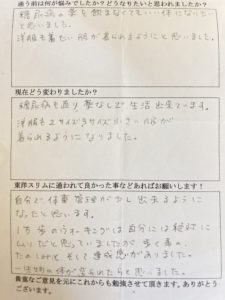 通う前は何が悩みでしたか？どうなりたいと思われましたか？
糖尿病の薬を飲まなくてもいい体になりたい
と思いました。
洋服も着たい服が着られるようにと思いました。
現在どう変わりましたか？
糖尿病も直り薬なしで生活出来ています。
洋服も2サイズ3サイズ小さい服が
着られるようになりました。
東洋スリムに通われて良かった事などあればお願いします！
自分で体重管理が少し出来るように
なったと思います。
1万歩のウオーキングは自分には絶対に
ムリだと思していましたが歩く事の
たのしみとそして達成感がありました。
一生切の体が
られたらと思いました。
貴重なご意見を元にこれからも勉強させて頂きます。ありがとう
ございます。